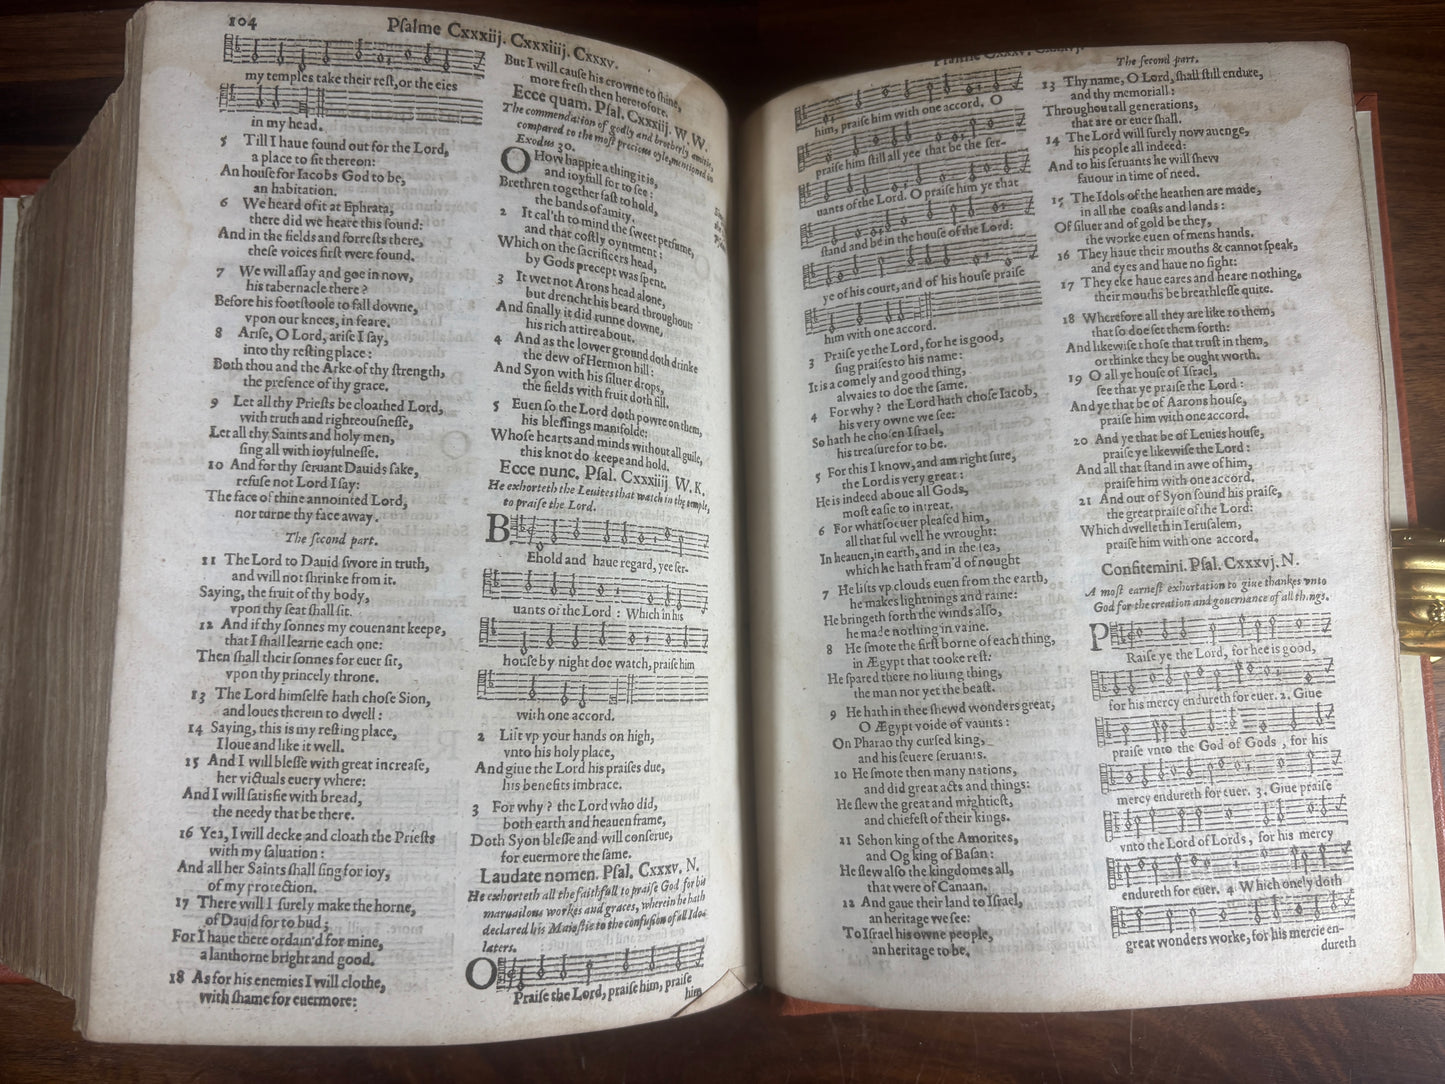 104
Pſalme Cxxxiij. Cxxxiiij. Cxxxv.
my temples take their reſt, or the eies
in my head.
5 Till I haue found out for the Lord,
a place to ſit thereon:
An houſe for Iacobs God to be,
an habitation.
6 We heard of it at Ephrata,
there did we heare this found:
And in the fields and forreſts there,
theſe voices firſt were found.
7 We will aſſay and goe in now,
his tabernacle there?
Before his footſtoole to fall downe,
vpon our knees, in feare.
8 Ariſe, O Lord, ariſe I ſay,
into thy reſting place:
Both thou and the Arke of thy ſtrength,
the preſence of thy grace.
9 Let all thy Prieſts be cloathed Lord,
with truth and righteouſneſſe,
Let all thy Saints and holy men,
ſing all with ioyfulneſſe.
10 And for thy ſeruant Dauids ſake,
refuſe not Lord I ſay:
The face of thine annointed Lord,
nor turne thy face away.
The ſecond part.
11 The Lord to Dauid ſwore in truth,
and will not ſhrinke from it.
Saying, the fruit of thy body,
vpon thy ſeat ſhall ſit.
12 And if thy ſonnes my couenant keepe,
that I ſhall learne each one:
Then ſhall their ſonnes for euer ſit,
vpon thy princely throne.
13 The Lord himſelfe hath choſe Sion,
and loues therein to dwell:
14 Saying, this is my reſting place,
I loue and like it well.
15 And I will bleſſe with great increaſe,
her victuals euery where:
And I will ſatisfie with bread,
the needy that be there.
16 Yea, I will decke and cloath the Prieſts
with my ſaluation:
And all her Saints ſhall ſing for ioy,
of my protection.
17 There will I ſurely make the horne,
of Dauid for to bud;
For I haue there ordain'd for mine,
a lanthorne bright and good.
18 As for his enemies I will clothe,
with ſhame for euermore:
But I will cauſe his crowne to ſhine,
more freſh then heretofore.
Ecce quam. Pſal. Cxxxiij. W. W.
The commendation of godly and brotherly amitie,
compared to the moſt precious oyle, mentioned in
Exodus 30.
O How happie a thing it is,
and ioyfull for to ſee:
Brethren together faſt to hold,
the bands of amity.
2 It cal'th to mind the ſweet perfume,
and that coſtly oyntment:
Which on the ſacrificers head,
by Gods precept was ſpent.
3 It wet not Arons head alone,
but drencht his beard throughout:
And finally it did runne downe,
his rich attire about.
4 And as the lower ground doth drinke
the dew of Hermon hill:
And Syon with his ſiluer drops,
the fields with fruit doth fill.
5 Euen ſo the Lord doth powre on them,
his bleſſings manifolde:
Whoſe hearts and minds without all guile,
this knot do keepe and hold.
Ecce nunc. Pſal. Cxxxiiij. W. K.
He exhorteth the Leuites that watch in the temple,
to praiſe the Lord.
BEhold and haue regard, yee ſer-
uants of the Lord: Which in his
houſe by night doe watch, praiſe him
with one accord.
2 Lift vp your hands on high,
vnto his holy place,
And giue the Lord his praiſes due,
his benefits imbrace.
3 For why? the Lord who did,
both earth and heauen frame,
Doth Syon bleſſe and will conſerue,
for euermore the ſame.
Laudate nomen. Pſal. Cxxxv. N.
He exhorteth all the faithfull to praiſe God for his
maruailous workes and graces, wherein he hath
declared his Maieſtie to the confuſion of all Ido-
laters.
O Praiſe the Lord, praiſe him, praiſe
him
him, praiſe with one accord. O
praiſe him ſtill all yee that be the ſer-
uants of the Lord. O praiſe him ye that
ſtand and be in the houſe of the Lord:
ye of his court, and of his houſe praiſe
him with one accord.
3 Praiſe ye the Lord, for he is good,
ſing praiſes to his name:
It is a comely and good thing,
alwaies to doe the ſame.
4 For why? the Lord hath choſe Iacob,
his very owne we ſee:
So hath he choſen Iſrael,
his treaſure for to be.
5 For this I know, and am right ſure,
the Lord is very great:
He is indeed aboue all Gods,
moſt eaſie to intreat.
6 For whatſoeuer pleaſed him,
all that ful well he wrought:
In heauen, in earth, and in the ſea,
which he hath fram'd of nought
7 He lifts vp clouds euen from the earth,
he makes lightnings and raine:
He bringeth forth the winds alſo,
he made nothing in vaine.
8 He ſmote the firſt borne of each thing,
in Ægypt that tooke reſt:
He ſpared there no liuing thing,
the man nor yet the beaſt.
9 He hath in thee ſhewd wonders great,
O Ægypt voide of vaunts:
On Pharao thy curſed king,
and his ſeuere ſeruants.
10 He ſmote then many nations,
and did great acts and things:
He ſlew the great and mightieſt,
and chiefeſt of their kings.
11 Sehon king of the Amorites,
and Og king of Baſan:
He ſlew alſo the kingdomes all,
that were of Canaan.
12 And gaue their land to Iſrael,
an heritage we ſee:
To Iſrael his owne people,
an heritage to be.
The ſecond part.
13 Thy name, O Lord, ſhall ſtill endure,
and thy memoriall:
Throughout all generations,
that are or euer ſhall.
14 The Lord will ſurely now auenge,
his people all indeed:
And to his ſeruants he will ſhew
fauour in time of need.
15 The Idols of the heathen are made,
in all the coaſts and lands:
Of ſiluer and of gold be they,
the worke euen of mens hands.
16 They haue their mouths & cannot ſpeak,
and eyes and haue no ſight:
17 They eke haue eares and heare nothing,
their mouths be breathleſſe quite.
18 Wherefore all they are like to them,
that ſo doe ſet them forth:
And likewiſe thoſe that truſt in them,
or thinke they be ought worth.
19 O all ye houſe of Iſrael,
ſee that ye praiſe the Lord:
And ye that be of Aarons houſe,
praiſe him with one accord.
20 And ye that be of Leuies houſe,
praiſe ye likewiſe the Lord:
And all that ſtand in awe of him,
praiſe him with one accord.
21 And out of Syon ſound his praiſe,
the great praiſe of the Lord:
Which dwelleth in Ieruſalem,
praiſe him with one accord.
Confitemini. Pſal. Cxxxvj. N.
A moſt earneſt exhortation to giue thankes vnto
God for the creation and gouernance of all things.
PRaiſe ye the Lord, for hee is good,
for his mercy endureth for euer. 2. Giue
praiſe vnto the God of Gods, for his
mercy endureth for euer. 3. Giue praiſe
vnto the Lord of Lords, for his mercy
endureth for euer. 4 Which onely doth
great wonders worke, for his mercie en-
dureth